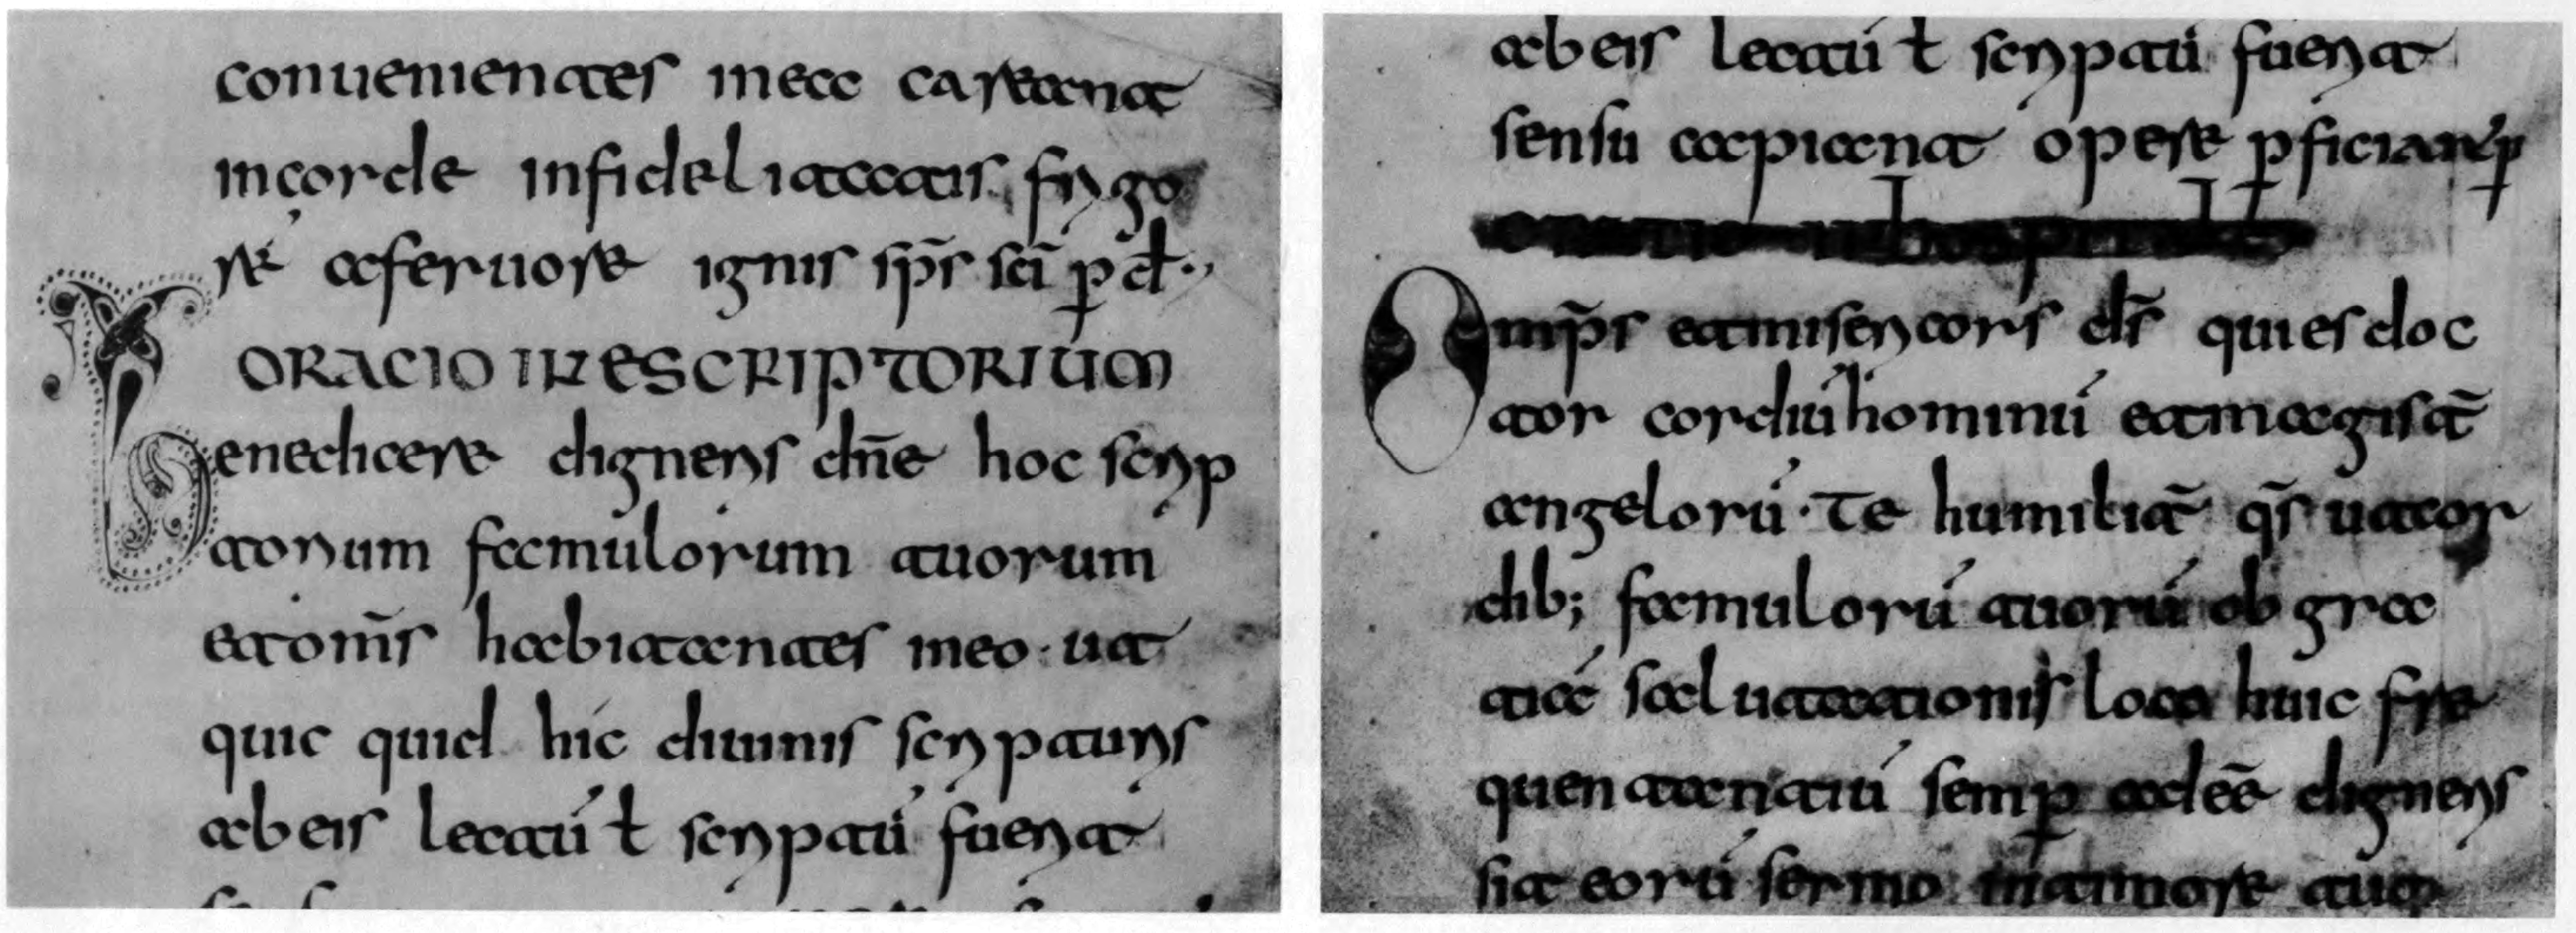 conuenientes inea careant
incorde infidelitatis frigo
re aferuore ignis sp̄s sc̄i p̱ d̄.,
ORACIO IN ESCRIPTORIUM
Benedicere digneris dn̄e hoc scrip
torium famulorum tuorum
et om̄s habitantes ineo · ut
quic quid hic diuinis scripturis
ab eis lectū ł scriptū fuerit
ab eis lectū ł scriptū fuerit
sensu capiant opere ꝑficiant ꝑ
Omp̄s et misericors ds̄ qui es doc
tor cordiū hominū et magistr̄
angelorū · Te humilit̄ qs̄ ut cor
dib; famulorū tuorū ob gra
tiā salutationis loco huic fre
quentantiū semꝑ adeē digneris
sit eorū sermo intimore tuo